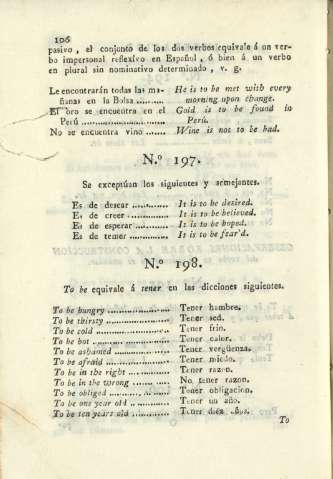 106
pasivo , el conjunto de los dos verbos equivale á un ver-
bo impersonal reflexivo en Español , ó bien á un verbo
en plural sin nominativo determinado , v. g.
Le encontrarán todas las ma- He is to be met with every
ñanas en la Bolsa ........... morning upon change.
El oro se encuentra en el Gold is to be found in
Perú ........................ Peru.
No se encuentra vino ....... Wine is not to be had.
N.º 197.
Se exceptúan los siguientes y semejantes.
Es de desear ............ It is to be desired.
Es de creer ............. It is to be believed.
Es de esperar ........... It is to be hoped.
Es de temer ............. It is to be fear'd.
N.º 198.
To be equivale á tener en las dicciones siguientes.
To be hungry .................... Tener hambre.
To be thirsty .................... Tener sed.
To be cold ....................... Tener frio.
To be hot ........................ Tener calor.
To be ashamed ................. Tener vergüenza.
To be afraid .................... Tener miedo.
To be in the right ............. Tener razon.
To be in the wrong ........... No tener razon.
To be obliged .................. Tener obligacion.
To be one year old ............ Tener un año.
To be ten years old ........... Tener diez años.
To